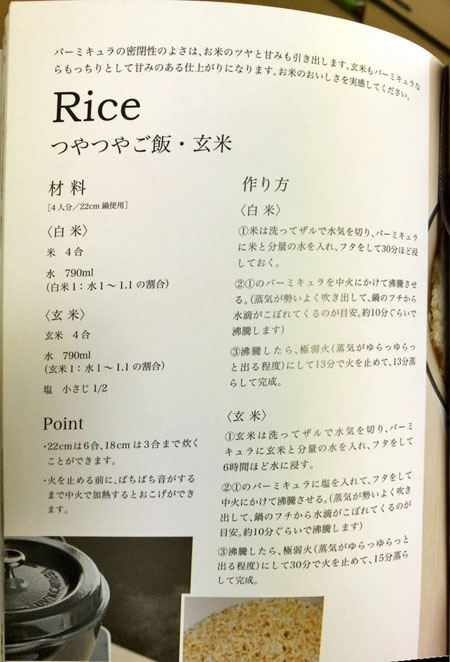 バーミキュラの密閉性のよさは、お米のツヤと甘みも引き出します。玄米もバーミキュラな
らもっちりとして甘みのある仕上がりになります。お米のおいしさを実感してください。
Rice
つやつやご飯・玄米
材料
[4人分/22cm鍋使用]
〈白米〉
米 4合
水 790ml
(白米1:水1〜1.1の割合)
〈玄米〉
玄米 4合
水 790ml
(玄米1:水1〜1.1の割合)
塩 小さじ1/2
Point
・22cmは6合、18cmは3合まで炊く
ことができます。
・火を止める前に、ぱちぱち音がする
まで中火で加熱するとおこげができ
ます。
作り方
〈白米〉
①米は洗ってザルで水気を切り、バーミキュラ
に米と分量の水を入れ、フタをして30分ほど浸
しておく。
②①のバーミキュラを中火にかけて沸騰させ
る。(蒸気が勢いよく吹き出して、鍋のフチから
水滴がこぼれてくるのが目安。約10分ぐらいで
沸騰します)
③沸騰したら、極弱火(蒸気がゆらっゆらっ
と出る程度)にして13分で火を止めて、13分蒸
らして完成。
〈玄米〉
①玄米は洗ってザルで水気を切り、バーミ
キュラに玄米と分量の水を入れ、フタをして
6時間ほど水に浸す。
②①のバーミキュラに塩を入れて、フタをして
中火にかけて沸騰させる。(蒸気が勢いよく吹き
出して、鍋のフチから水滴がこぼれてくるのが
目安。約10分ぐらいで沸騰します)
③沸騰したら、極弱火(蒸気がゆらっゆらっと
出る程度)にして30分で火を止めて、15分蒸ら
して完成。